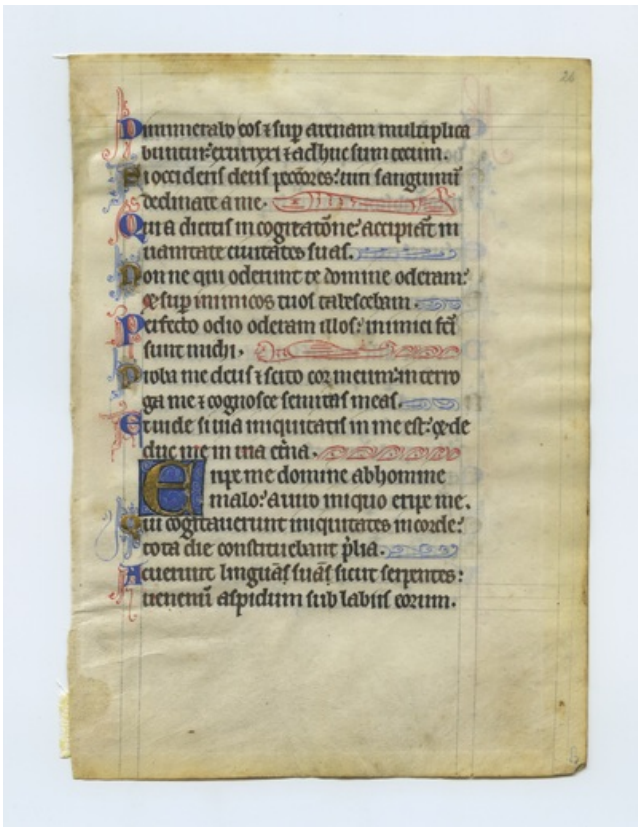 26
Dinumerabo eos ⁊ sup arenam multiplica
buntur: exurrexi ⁊ adhuc sum tecum.
Si occideris deus peccōres: uiri sanguinū
declinate a me.
Quia dicitis in cogitatōne: accipiāt in
uanitate ciuitates suas.
Nonne qui oderunt te domine oderam:
⁊ sup inimicos tuos tabescebam.
Perfecto odio oderam illos: inimici fcī
sunt michi.
Proba me deus ⁊ scito cor meum: interro
ga me ⁊ cognosce semitas meas.
Et uide si uia iniquitatis in me est: ⁊ de
duc me in uia etīna.
Eripe me domine ab homine
malo: a uiro iniquo eripe me.
Qui cogitauerunt iniquitates in corde:
tota die constituebant p̄lia.
Acuerunt linguās suās sicut serpentes:
uenenū aspidum sub labiis eorum.